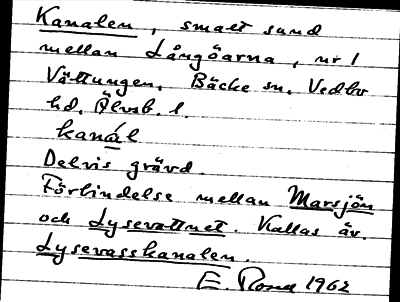 Kanalen, smalt sund
mellan Långöarna, nr 1
Vättungen. Bäcke sn. Vedbo
hd. Älvsb. l.
kanál
Delvis grävd.
Förbindelse mellan Marsjön
och Lysevattnet. Kallas äv.
Lysevasskanalen.
E. 1962